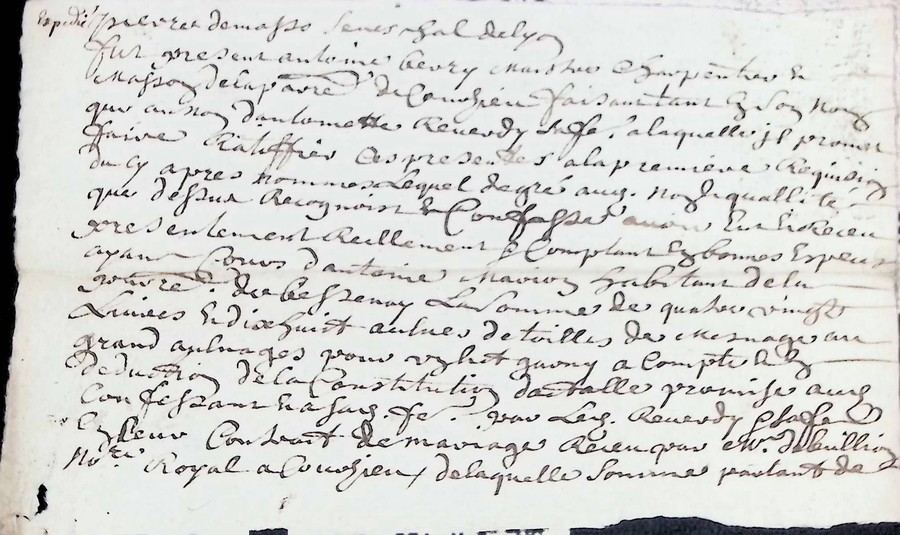 Expedié
pierre demasso seneschal delyon
fut present antoine berry Maistre Charpentier &
Masson delaparre de Courzieu faisant tant en son nom
que au nom dantomette Reverdy sa fe. alaquelle il promet
faire Ratiffier ces presentes alapremiere Requisition
du cy apres nommes Lequel degré aud. nom & quallité
que dessus Recognoist & Confesse avoir Eu & Receu
presentement Reellement & Comptant en bonnes Espeus
ayant Cours dantoine Marion habitant dela
parre de bessenay La somme de quatre vingt
Livres & dixhuict aulnes de toilles de mesnage au
grand aulnages pour un lict garny a Compte & en
deduction dela Constitution dotalle promise aud.
Confessant & a sad. fe. par Led. Reverdy & sa fe.
en leur Contrat de mariage Receu par Me. debullion
Nore. Royal a Courzieu delaquelle somme partant de